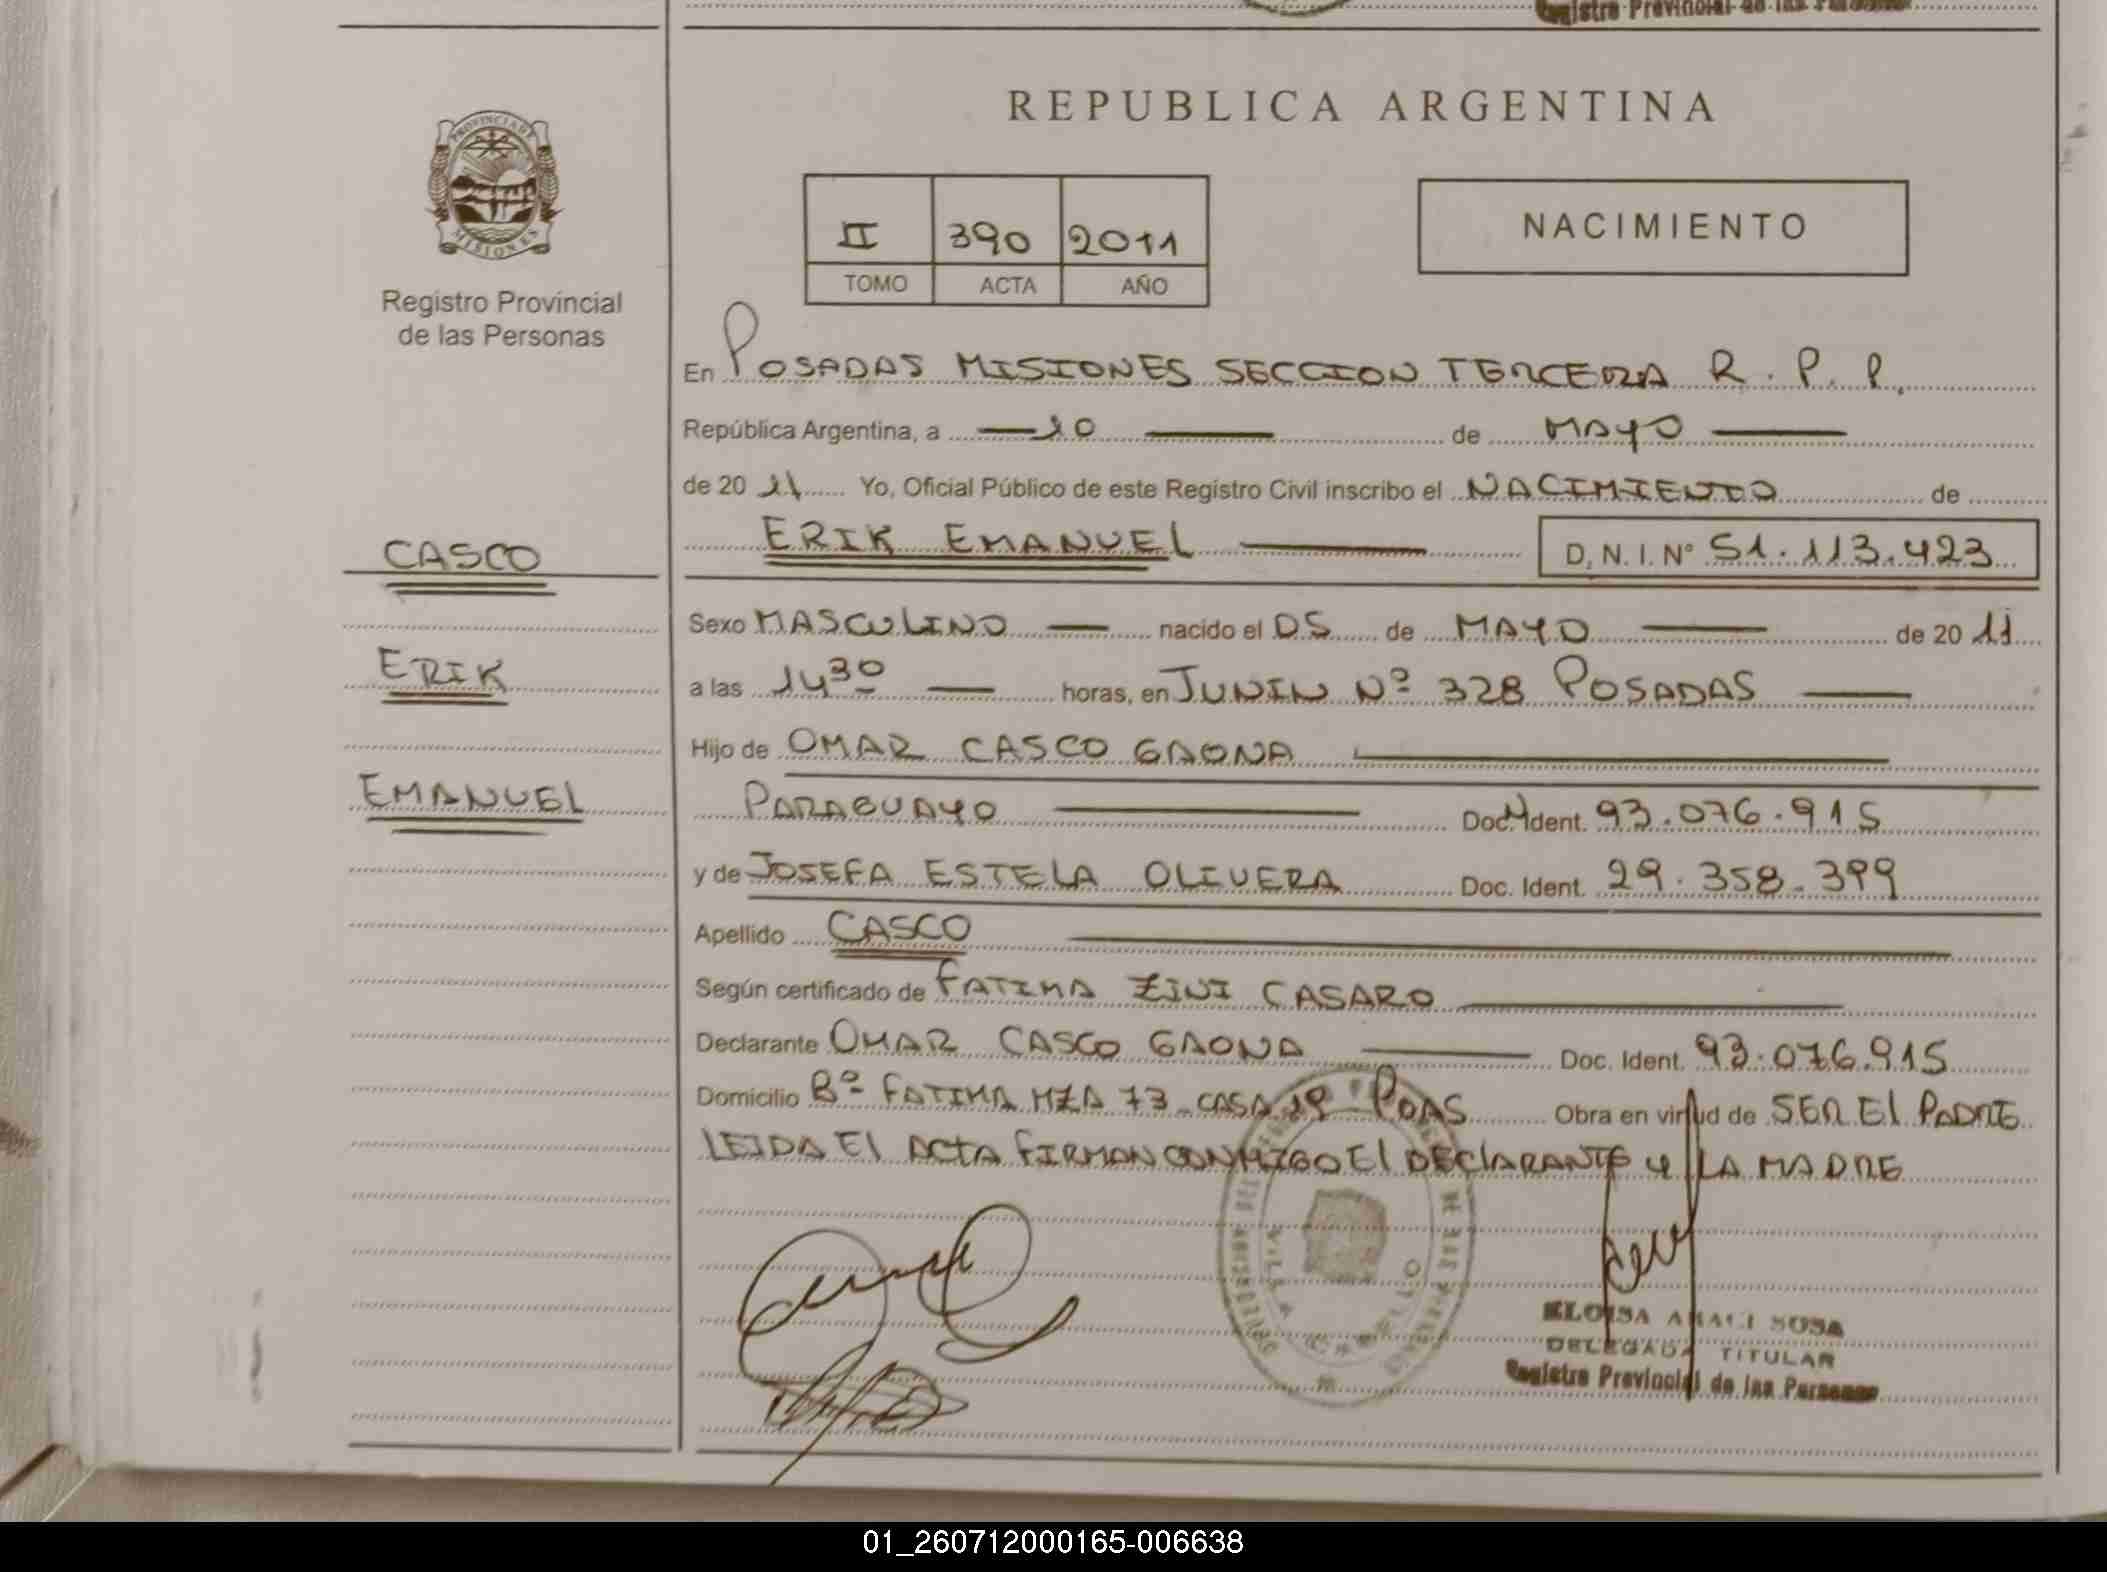 Registro Provincial de las Personas
REPUBLICA ARGENTINA
PROVINCIA DE
MISIONES
Registro Provincial
de las Personas
II 390 2011
TOMO ACTA AÑO
NACIMIENTO
En POSADAS MISIONES SECCION TERCERA R.P.P.
República Argentina, a 10 de MAYO
de 20 11 Yo, Oficial Público de este Registro Civil inscribo el NACIMIENTO de
ERIK EMANUEL D.N.I.N° 51.113.423
CASCO
Sexo MASCULINO nacido el 05 de MAYO de 20 11
ERIK
a las 14 30 horas, en JUNIN Nº 328 POSADAS
Hijo de OMAR CASCO GAONA
EMANUEL
PARAGUAYO Doc. Ident. 93.076.915
y de JOSEFA ESTELA OLIVERA Doc. Ident. 29.358.399
Apellido CASCO
Según certificado de FATIMA ZINI CASARO
Declarante OMAR CASCO GAONA Doc. Ident. 93.076.915
Domicilio Bº FATIMA MZA 73 CASA 19 POAS Obra en virtud de SER El PADRE
LEIDA El ACTA FIRMAN CONMIGO El DEClARANTE y LA MADRE
ELOISA ANACI SOSA
DELEGADA TITULAR
Registro Provincial de las Personas
01_260712000165-006638